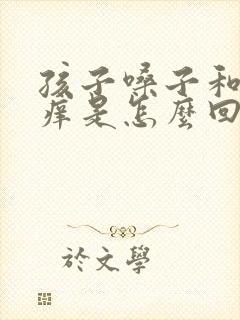 孩子嗓子和
痒是怎麼回
於文學